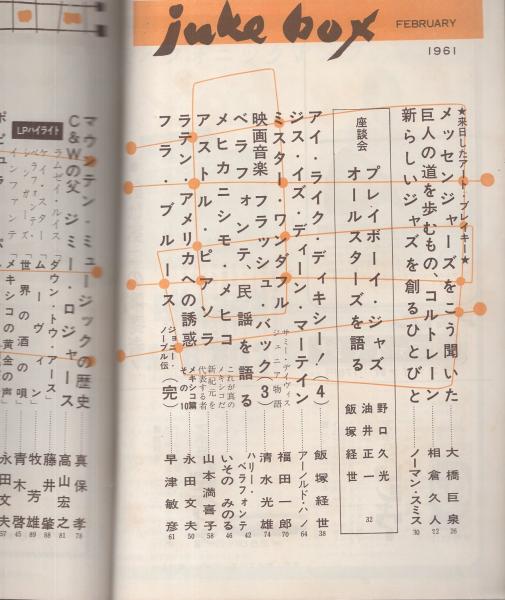 juke box
FEBRUARY
1961
★来日したアート・ブレイキー★
メッセンジャーズをこう聞いた……大橋巨泉 26
巨人の道を歩むもの、コルトレーン……相倉久人 22
新らしいジャズを創るひとびと……ノーマン・スミス 30
座談会
プレイボーイ・ジャズ
オールスターズを語る
野口久光
油井正一
飯塚経世
32
アイ・ライク・ディキシー!(4)……飯塚経世 38
ジス・イズ・ディーン・マーティン……アーノルド・ハノ 64
ミスター・ワンダフル サミー・デイヴィスジュニア物語……福田一郎 70
映画音楽 フラッシュ・バック(3)……清水光雄 74
ベラフォンテ、民謡を語る……ハリー・ベラフォンテ 42
メヒカニシモ・メヒコ これが真のメキシコだ……いその みのる 46
アストル・ピアソラ 新紀元を代表する者……山本満喜子 58
ラテン・アメリカへの誘惑 メキシコ篇 その10……永田文夫 50
フラ・ブルース ジョニー・ノーブル伝(完)……早津敏彦 61
マウンテン・ミュージックの歴史……真保孝 78
C&Wの父 ジミー・ロジャース……高山宏之 81
LPハイライト
ラムゼイ・ルイス「ダウン・トウ・アース」……藤井肇 88
ケイ・スター「ムーヴィン」……牧芳雄 89
「世界の酒の唄」……青木啓 45
メキシコの黄金の声……永田文夫 57